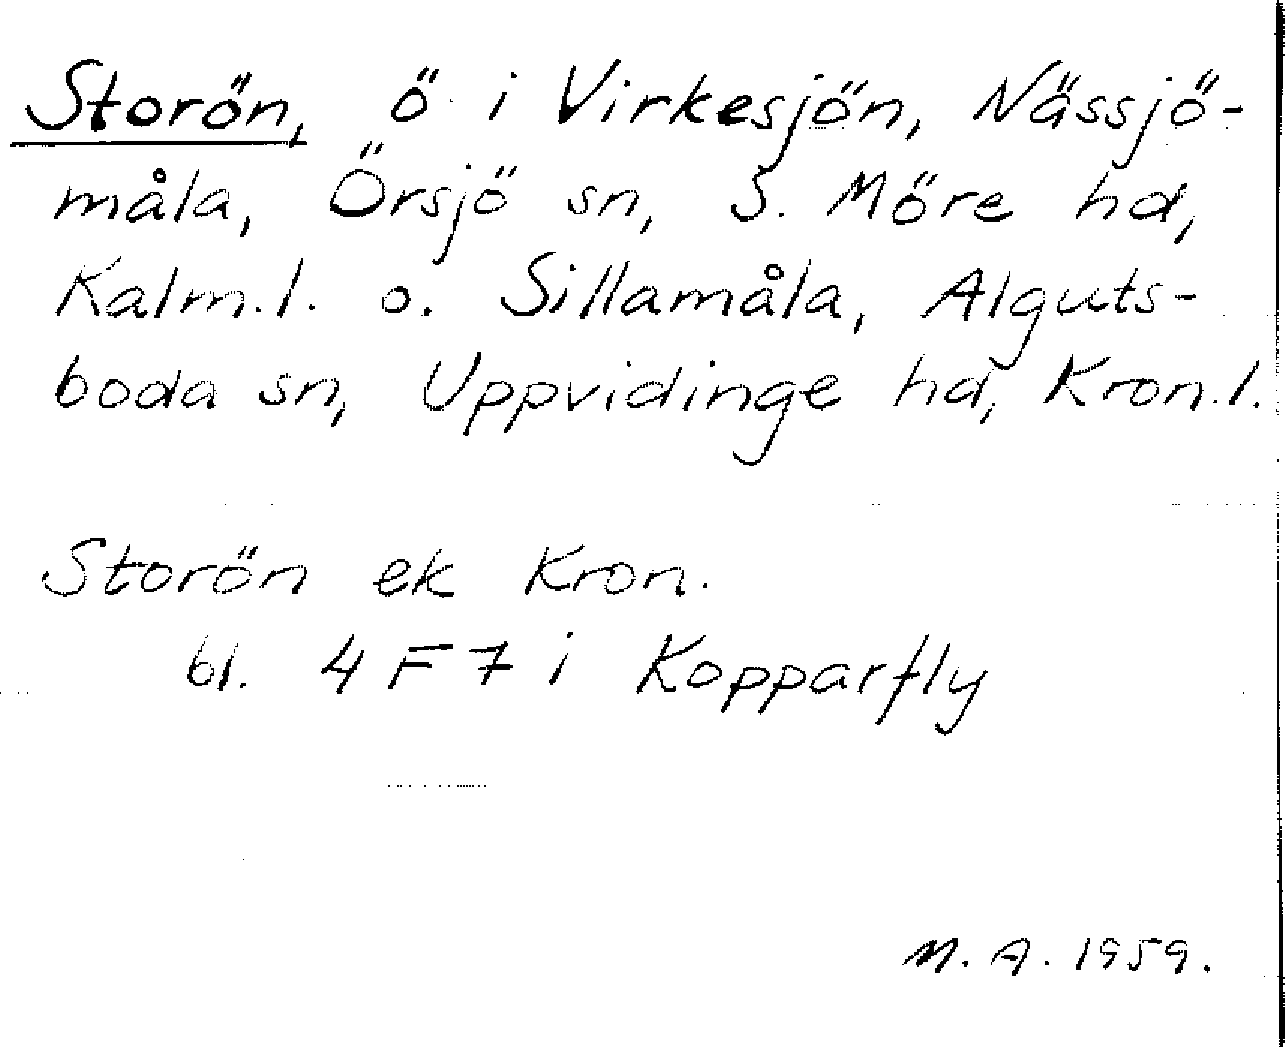 Storön, ö i Virkesjön, Nässjö-
måla, Örsjö sn, S. Möre hd,
Kalm.l. o. Sillamåla, Alguts-
boda sn, Uppvidinge hd, Kron.l.
Storön ek Kron.
bl. 4 F 7 i Kopparfly
M. A. 1959.